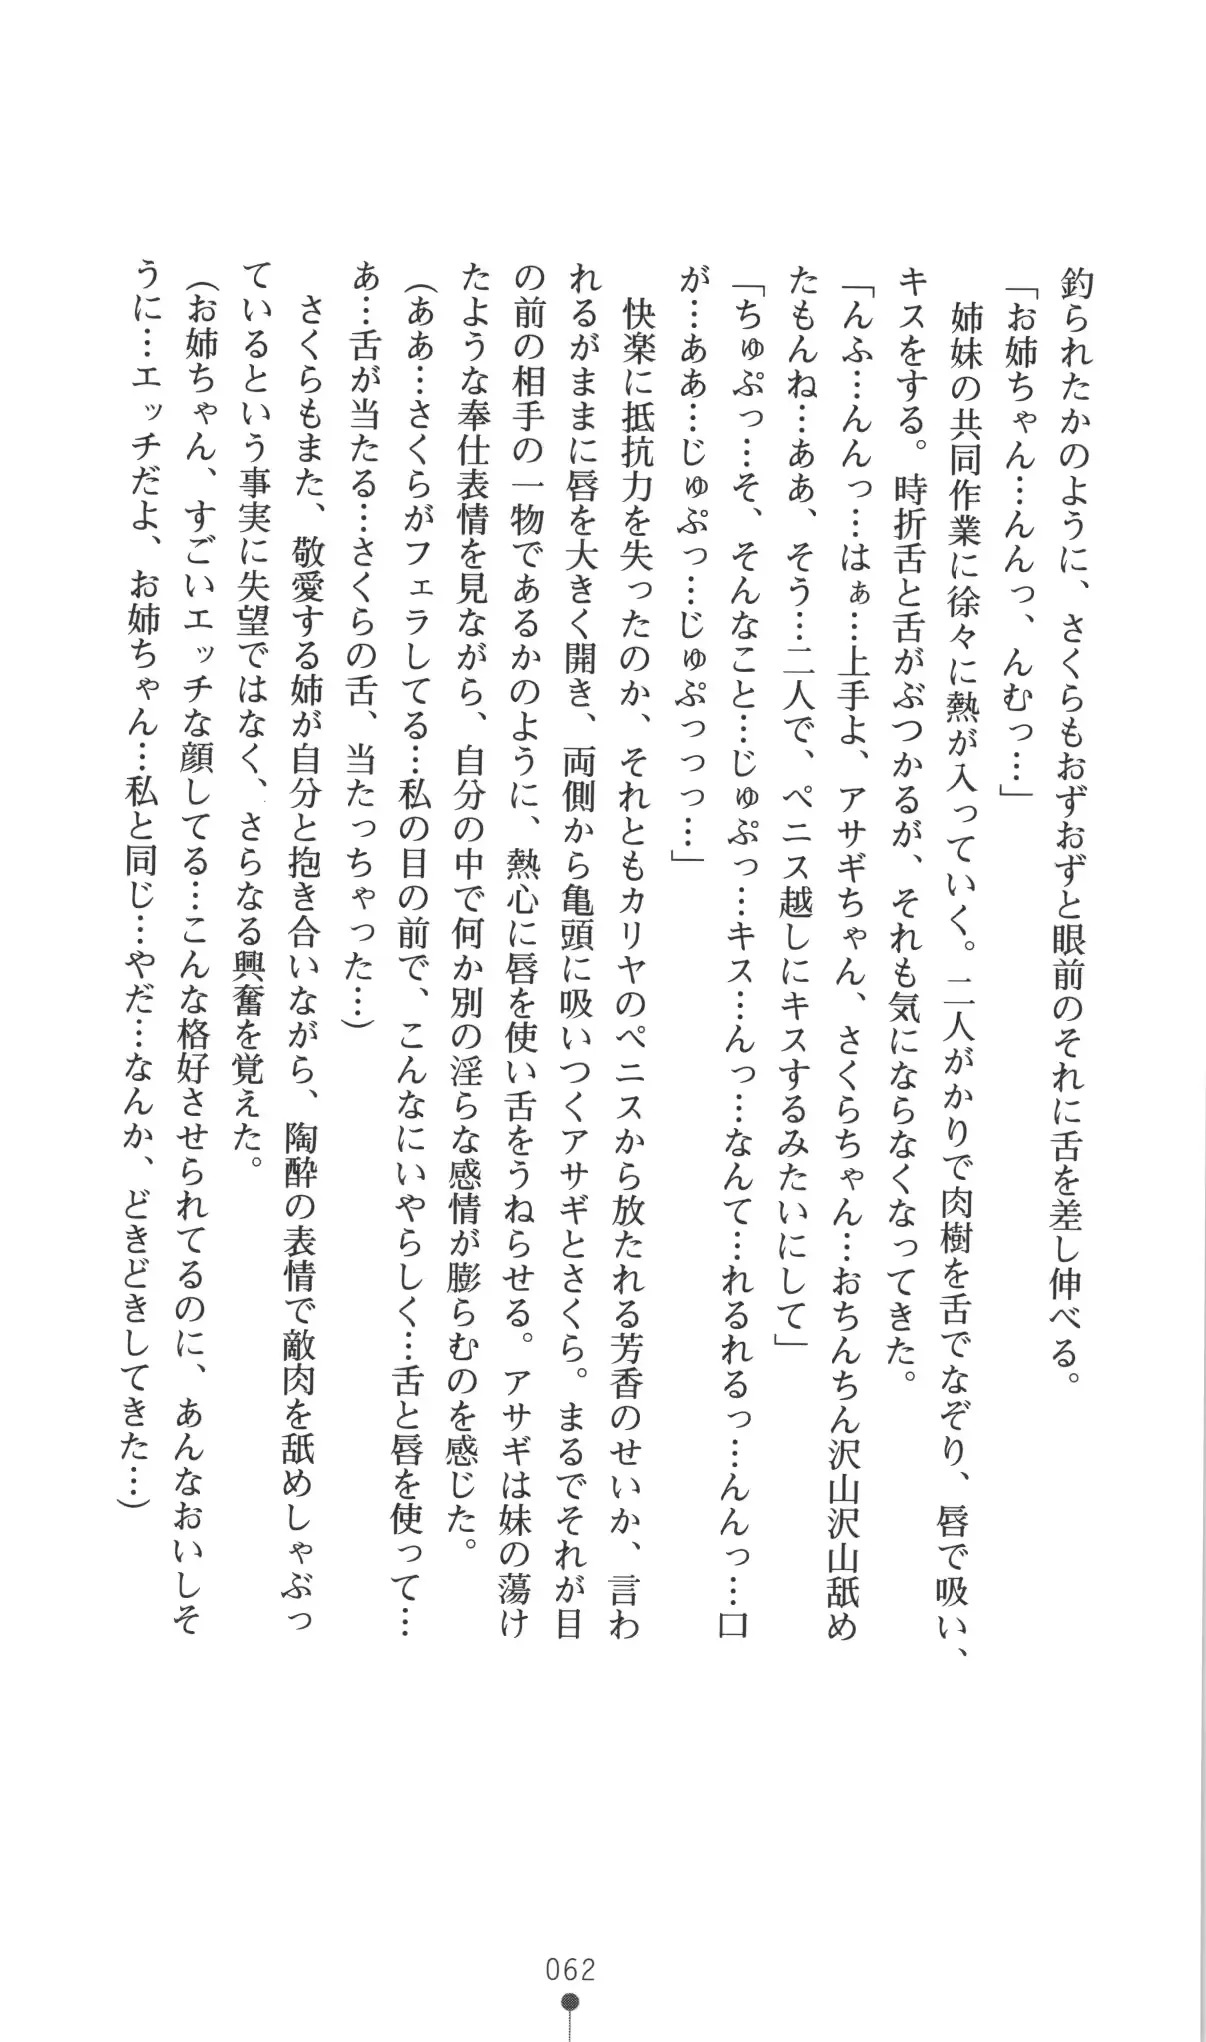 釣られたかのように、さくらもおずおずと眼前のそれに舌を差し伸べる。
「お姉ちゃん…んんっ、んむっ…」
姉妹の共同作業に徐々に熱が入っていく。二人がかりで肉樹を舌でなぞり、唇で吸い、
キスをする。時折舌と舌がぶつかるが、それも気にならなくなってきた。
「んふ…んんっ…はぁ…上手よ、アサギちゃん、さくらちゃん…おちんちん沢山沢山舐め
たもんね…ああ、そう…二人で、ペニス越しにキスするみたいにして」
「ちゅぷっ…そ、そんなこと…じゅぷっ…キス…んっ…なんて…れるれるっ…んんっ…口
が…ああ…じゅぷっ…じゅぷっっっ…」
快楽に抵抗力を失ったのか、それともカリヤのペニスから放たれる芳香のせいか、言わ
れるがままに唇を大きく開き、両側から亀頭に吸いつくアサギとさくら。まるでそれが目
の前の相手の一物であるかのように、熱心に唇を使い舌をうねらせる。アサギは妹の蕩け
たような奉仕表情を見ながら、自分の中で何か別の淫らな感情が膨らむのを感じた。
(ああ…さくらがフェラしてる…私の目の前で、こんなにいやらしく…舌と唇を使って…
あ…舌が当たる…さくらの舌、当たっちゃった…)
さくらもまた、敬愛する姉が自分と抱き合いながら、陶酔の表情で敵肉を舐めしゃぶっ
ているという事実に失望ではなく、さらなる興奮を覚えた。
(お姉ちゃん、すごいエッチな顔してる…こんな格好させられてるのに、あんなおいしそ
うに…エッチだよ、お姉ちゃん…私と同じ…やだ…なんか、どきどきしてきた…)
062